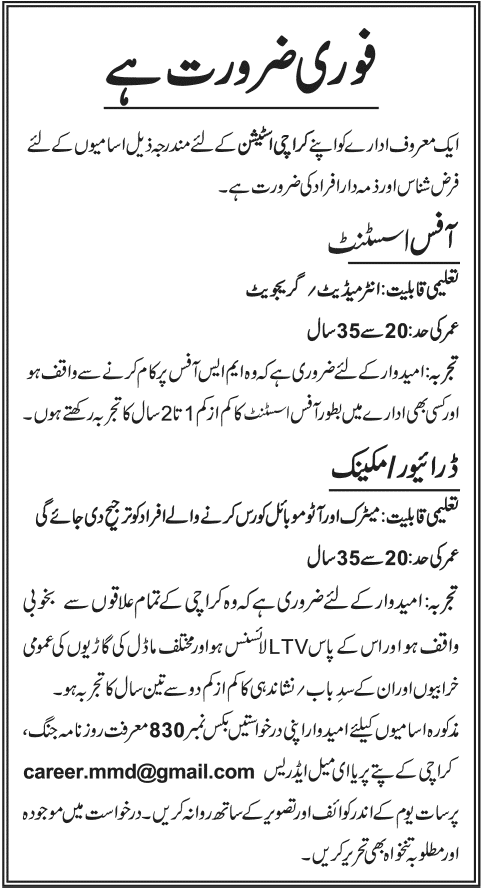 فوری ضرورت ہے
ایک معروف ادارے کو اپنے کراچی اسٹیشن کے لئے مندرجہ ذیل اسامیوں کے لئے
فرض شناس اور ذمہ دار افراد کی ضرورت ہے۔
آفس اسسٹنٹ
تعلیمی قابلیت: انٹرمیڈیٹ/ گریجویٹ
عمر کی حد: 20 سے 35 سال
تجربہ: امیدوار کے لئے ضروری ہے کہ وہ ایم ایس آفس پر کام کرنے سے واقف ہو
اور کسی بھی ادارے میں بطور آفس اسسٹنٹ کا کم از کم 1 تا 2 سال کا تجربہ رکھتے ہوں۔
ڈرائیور/مکینک
تعلیمی قابلیت: میٹرک اور آٹو موبائل کورس کرنے والے افراد کو ترجیح دی جائے گی
عمر کی حد: 20 سے 35 سال
تجربہ: امیدوار کے لئے ضروری ہے کہ وہ کراچی کے تمام علاقوں سے بخوبی
واقف ہو اور اس کے پاس LTV لائسنس ہو اور مختلف ماڈل کی گاڑیوں کی عمومی
خرابیوں اور ان کے سدِ باب/ نشاندہی کا کم از کم دو سے تین سال کا تجربہ ہو۔
مذکورہ اسامیوں کیلئے امیدوار اپنی درخواستیں بکس نمبر 830 معرفت روزنامہ جنگ،
کراچی کے پتے پر یا ای میل ایڈریس career.mmd@gmail.com
پر سات یوم کے اندر کوائف اور تصویر کے ساتھ روانہ کریں۔ درخواست میں موجودہ
اور مطلوبہ تنخواہ بھی تحریر کریں۔